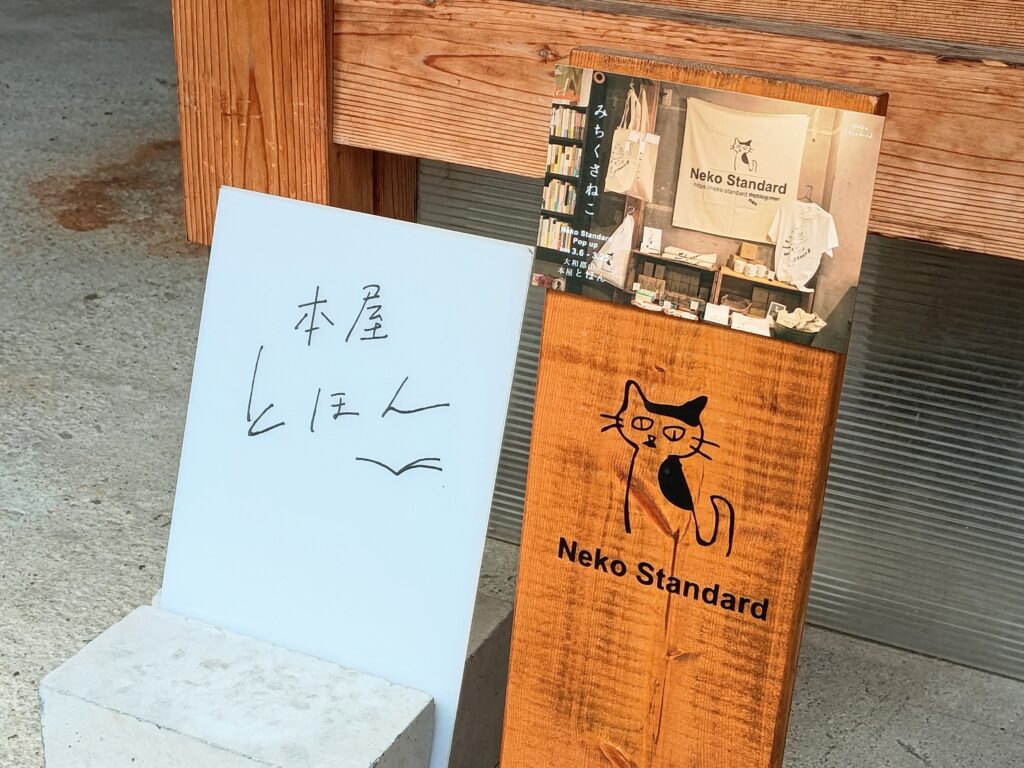 本屋
とほん
みちくさねこ
Neko Standard
Neko Standard
Pop up
3.6 - 3.
大和郡山
本屋とほん
Neko Standard
Neko Standard